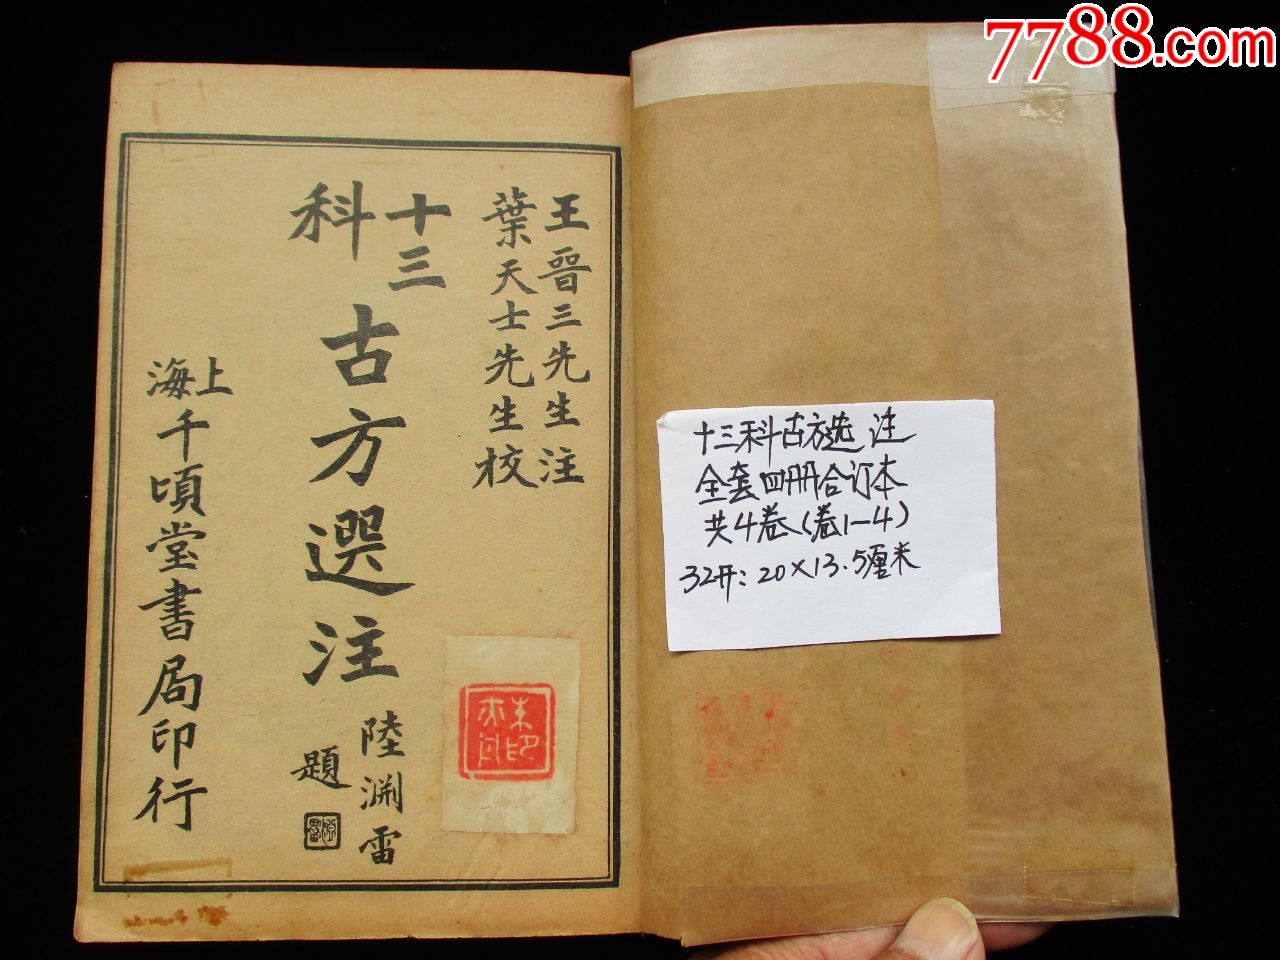 7788.com
王晋三先生注
葉天士先生校
十三科
古方選注
陸渊雷
題
上海
千頃堂書局印行
十三科古方选注
全套四册合订本
共4卷(卷1-4)
32开:20×13.5厘米